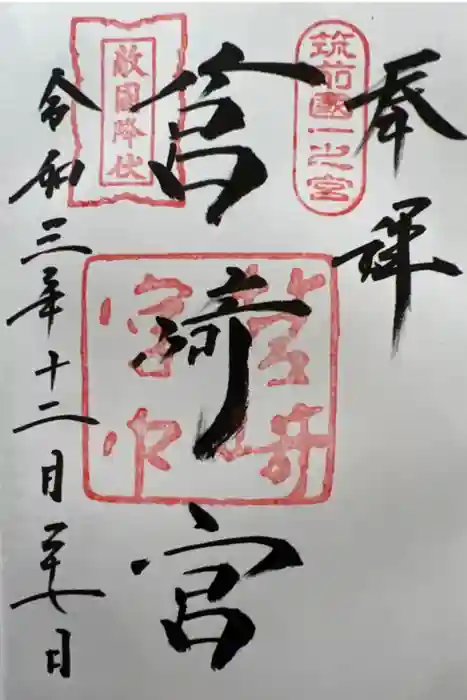 奉拝
筑前國一之宮
筥崎宮
敵國降伏
筥崎宮印
令和三年十二月二十七日